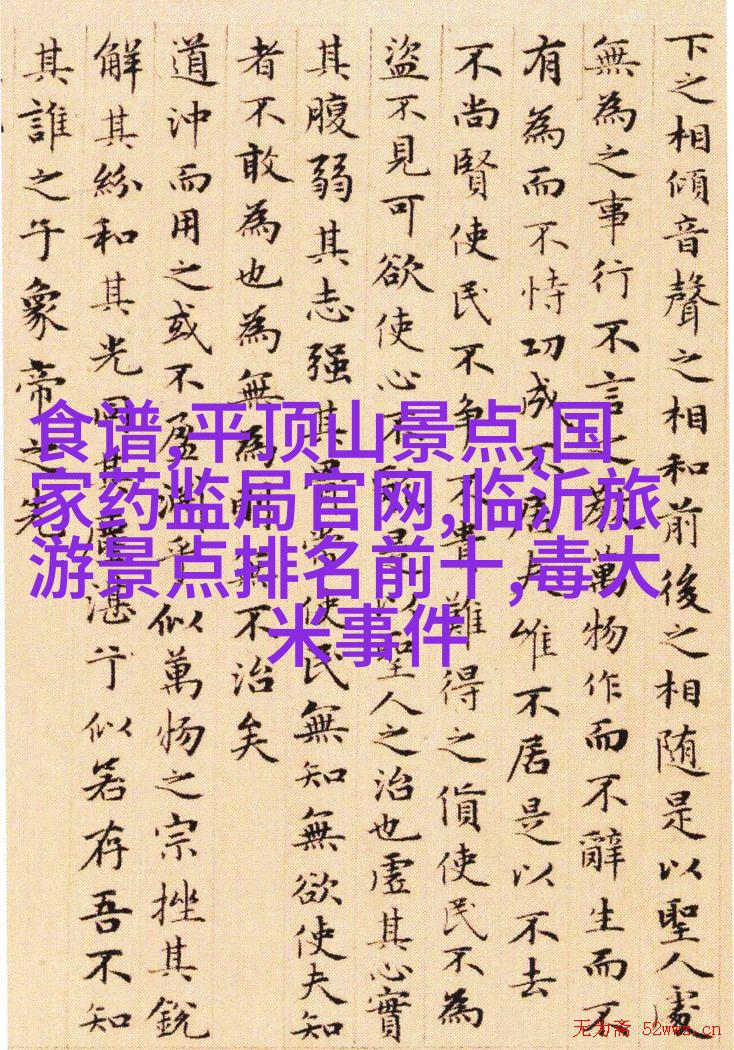 下之相傾音聲之相和前後之相随是以聖人處
無為之事行不言之教萬物作而不辭生而不
有為而不恃功成不居夫唯不居是以不去
不尚賢使民不争不貴難得之貨使民不為
盜不見可欲使心不亂是以聖人之治也虛其心實
其腹弱其志强其骨常使民無知無欲使夫知
者不敢為也為無為則無不治矣
道沖而用之或不盈淵乎似萬物之宗挫其銳
解其紛和其光同其塵湛兮似若存吾不知
其誰之子象帝之先
食谱,平顶山景点,国
家药监局官网,临沂旅
游景点排名前十,毒大
米事件
无为斋 52wwz.cn